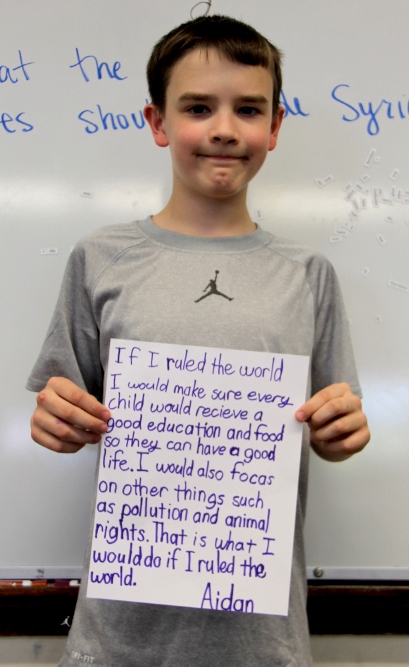 at the
es shou de Syri
If I ruled the world
I would make sure every
child would recieve a
good education and food
so they can have a good
life. I would also focas
on other things such
as pollution and animal
rights. That is what I
would do if I ruled the
world.
Aidan
DRI-FIT